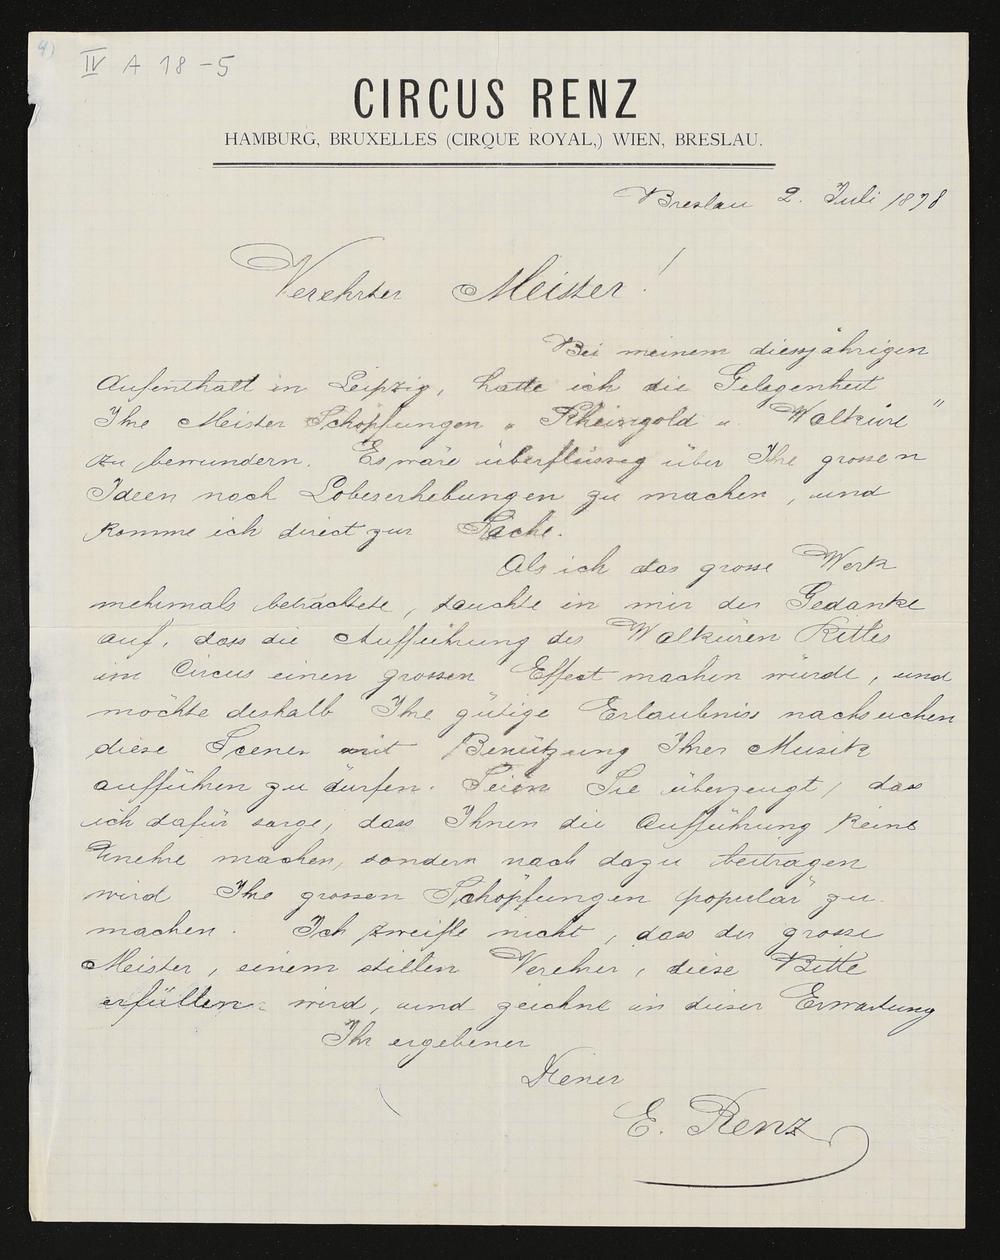 4)
IV A 18-5
CIRCUS RENZ
HAMBURG, BRUXELLES (CIRQUE ROYAL,) WIEN, BRESLAU.
Breslau 2. Juli 1878
Verehrter Meister!
Bei meinem diesjährigen
Aufenthalt in Leipzig, hatte ich die Gelegenheit
Ihre Meister Schöpfungen „ Rheingold u. Walküre "
zu bewundern. Es wäre überflüssig über Ihre grossen
Ideen noch Lobeserhebungen zu machen, und
komme ich direct zur Sache.
Als ich das grosse Werk
mehrmals betrachtete, tauchte in mir der Gedanke
auf, dass die Aufführung des Walküren Rittes
im Circus einen grossen Effect machen würde, und
möchte deshalb Ihre gütige Erlaubniss nachsuchen
diese Scenen mit Benützung Ihrer Musik
aufführen zu dürfen. Seien Sie überzeugt, dass
ich dafür sorge, dass Ihnen die Aufführung keine
Unehre machen, sondern noch dazu beitragen
wird Ihre grossen Schöpfungen populär zu
machen. Ich zweifle nicht, dass der grosse
Meister, einem stillen Verehrer, diese Bitte
erfüllen wird, und zeichne in dieser Erwartung
Ihr ergebener
Diener
E. Renz